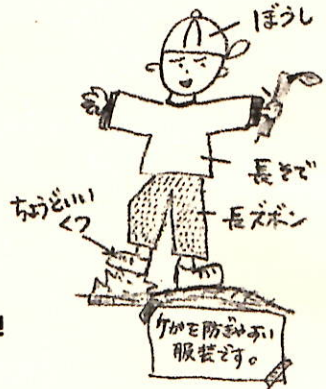 ぼうし
長そで
長ズボン
ちょうどいい
くつ
ケガを防ぎやすい
服装です。
!